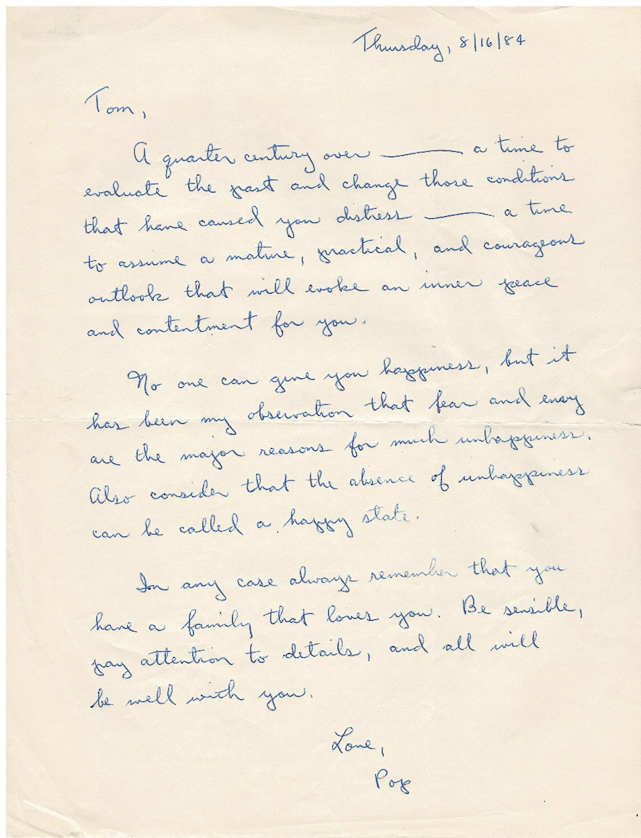 Thursday, 8/16/84
Tom,
A quarter century over —— a time to
evaluate the past and change those conditions
that have caused you distress —— a time
to assume a mature, practical, and courageous
outlook that will evoke an inner peace
and contentment for you.
No one can give you happiness, but it
has been my observation that fear and envy
are the major reasons for much unhappiness.
Also consider that the absence of unhappiness
can be called a happy state.
In any case always remember that you
have a family that loves you. Be sensible,
pay attention to details, and all will
be well with you.
Love,
Pop